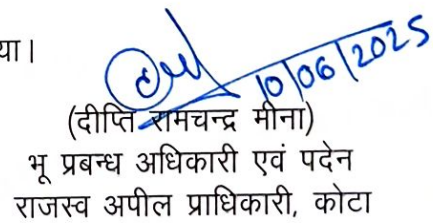 या।
10/06/2025
(दीप्ति रामचन्द्र मीना)
भू प्रबन्ध अधिकारी एवं पदेन
राजस्व अपील प्राधिकारी, कोटा